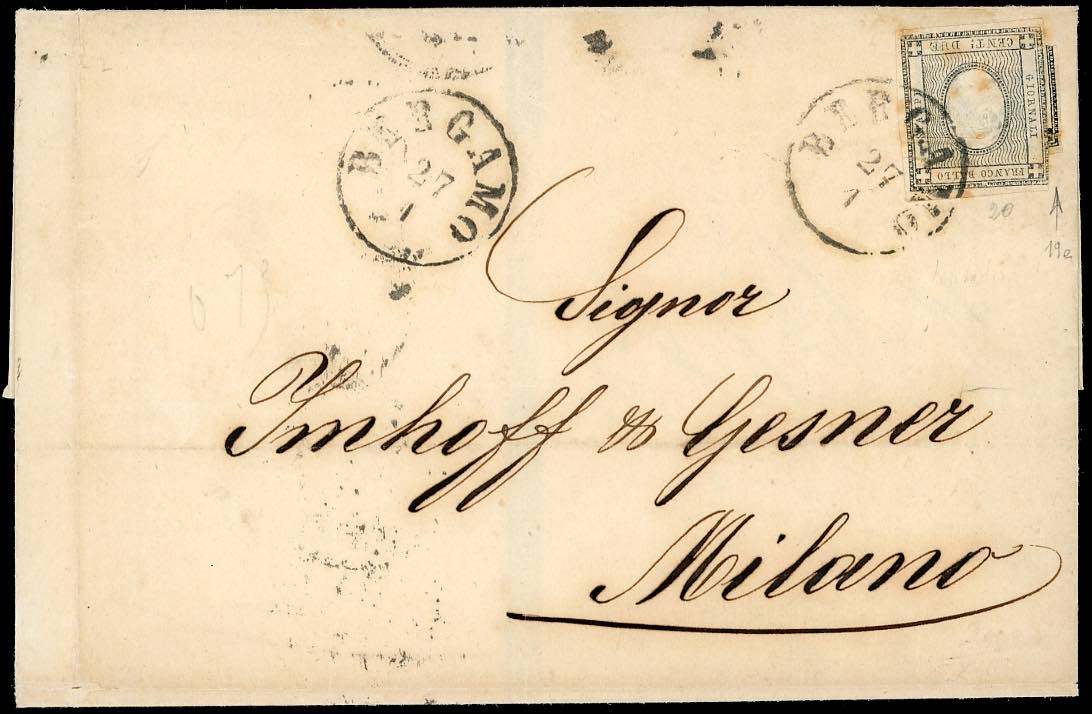 CENT! DUE
GIORNALI
FRANCO BOLLO
BERGAMO
27
1
BERGAMO
27
1
20
19e
Signor
Imhoff & Gesner
Milano